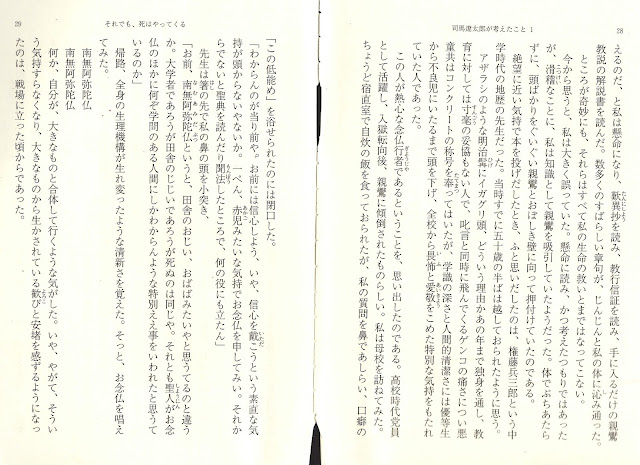 司馬遼太郎が考えたこと 1
28
えるのだ、と私は懸命になり、歎異抄を読み、教行信証を読み、手に入るだけの親鸞
教説の解説書を読んだ。数多くのすばらしい章句が、じんじんと私の体に沁み通った。
ところが奇妙にも、それらはすべて私の生命の救いとまではなってこない。
今から思うと、私は大きく誤っていた。懸命に読み、かつ考えたつもりではあった
が、滑稽なことに、私は知識として親鸞を吸引していたようだった。体でぶちあたら
ずに、頭ばかりをぐいぐい親鸞とおぼしき壁に向って押付けていたのである。
絶望に近い気持で本を投げだしたとき、ふと思いだしたのは、権藤兵三郎という中
学時代の地歴の先生だった。当時すでに五十歳の半ばは越しておられたように思う。
アザラシのような明治髯にイガグリ頭、どういう理由かあの年まで独身を通し、教
育に対しては寸毫の妥協もない人で、叱言と同時に飛んでくるゲンコの痛さについ悪
童共はコンクリートの称号を奉ってはいたが、学識の深さと人間的清潔さには優等生
から不良児にいたるまで頭を下げ、全校から畏怖と愛敬をこめた特別な気持をもたれ
ていた人であった。
この人が熱心な念仏行者であるということを、思い出したのである。高校時代党員
として活躍し、入獄転向後、親鸞に傾倒されたものらしい。私は母校を訪ねてみた。
ちょうど宿直室で自炊の飯を食っておられたが、私の質問を鼻であしらい、口癖の
それでも、死はやってくる
29
「この低能め」を浴せられたのには閉口した。
「わからんのが当り前や。お前には信心しよう、いや、信心を戴こうという素直な気
持が頭からないやないか。一ぺん、赤児みたいな気持でお念仏を申してみい。それか
らでないと聖典を読んだり聞法したところで、何の役にも立たん」
先生は箸の先で私の鼻の頭を小突き、
「お前、南無阿弥陀仏というと、田舎のおじい、おばばみたいやと思うてるのと違う
か。大学者であろうが田舎のじじいであろうが死ぬのは同じや。それとも聖人がお念
仏のほかに何ぞ学問のある人間にしかわからんような特別ええ事をいわれたと思うて
いるのか」
帰路、全身の生理機構が生れ変ったような清新さを覚えた。そっと、お念仏を唱え
てみた。
南無阿弥陀仏
南無阿弥陀仏
何か、自分が、大きなものと合体して行くような気がした。いや、やがて、そうい
う気持すらなくなり、大きなものから生かされている歓びと安堵を感ずるようになっ
たのは、戦場に立った頃からであった。